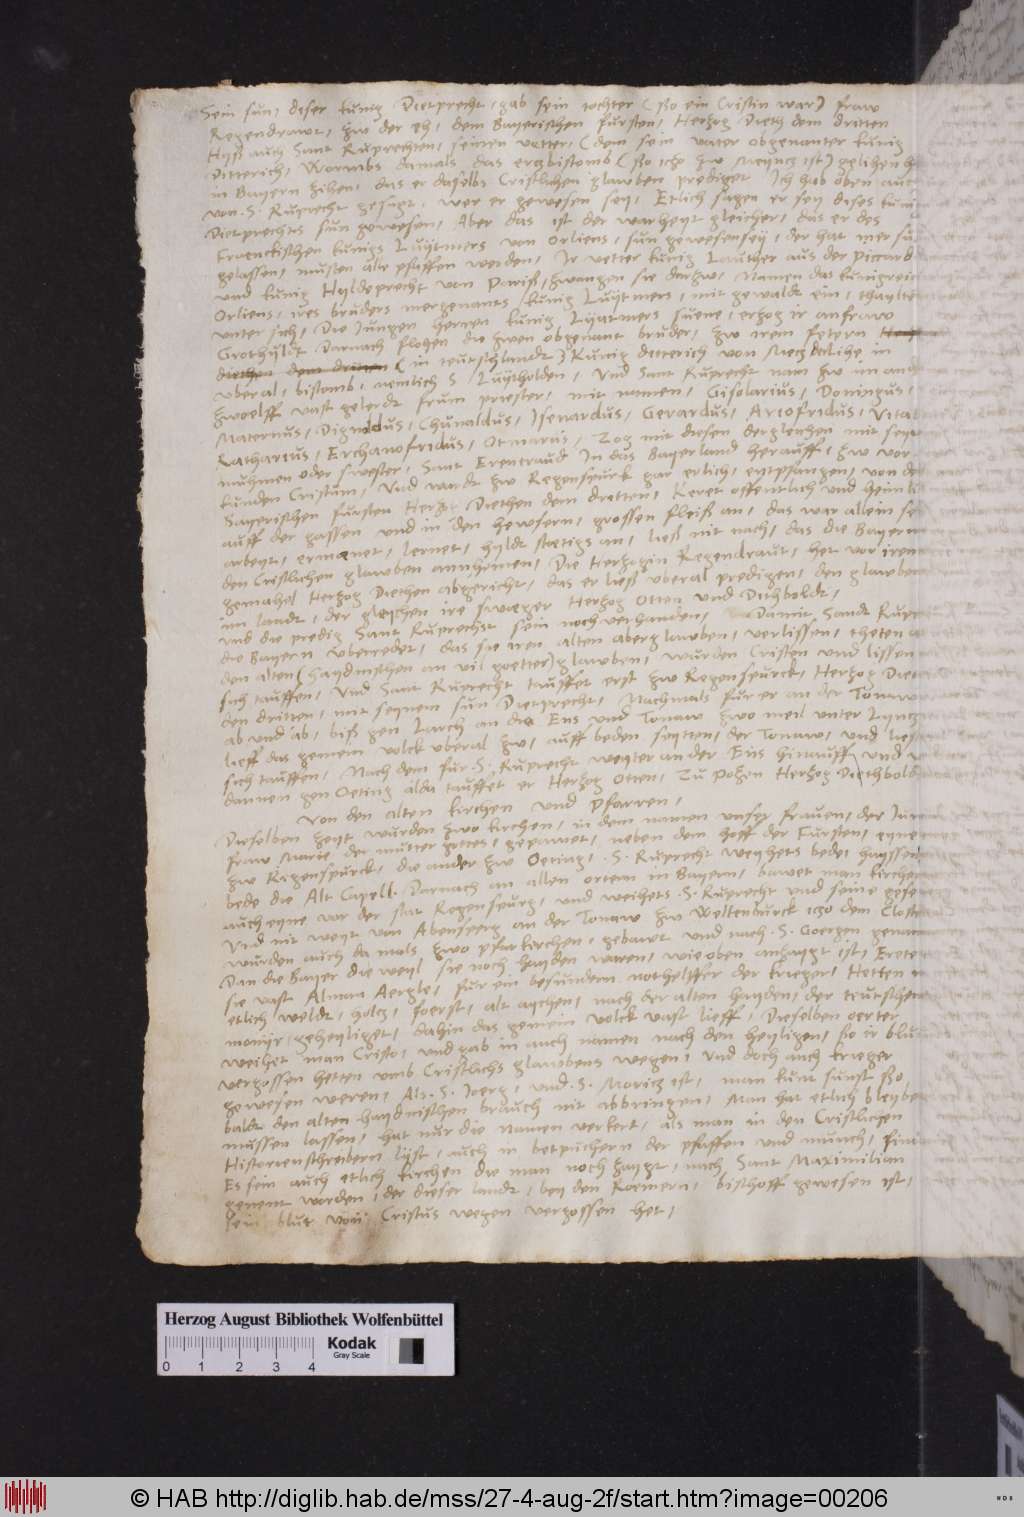 Sein sun, diser kunig Dietprecht, gab sein tochter (Bo ein Cristin war) fraw
Regendrawt, zw der eh, dem Bayerischen fursten, Hertzog Dieth dem dritten
Hyß auch Sant Ruprechten, seinen vetter, (dem sein vater obgenanter kunig
Ditterich, Wormbs damals das ertzbistomb (Bo itzo zw Meyntz ist) gelihen
in Bayern zihen, das er daselbs Cristlichen glawben prediget. Ich hab oben
von S. Ruprecht gesagt, wer er gewesen sey, Etlich sagen er sey dises
Dietprechts sun gewesen, Aber das ist der warheyt gleicher, das er des
Franckischen kunigs Luytmers von Orliens, sun gewesen sey, der hat mer
gelassen, musten alle pfaffen werden, Ir vetter kunig Lauther aus der Piccard
und kunig Hyldeprecht von Pariß, zwangen sie darzw, Namen das kunigreich
Orliens, ires bruders mergenants kunig Luytmers, mit gewaldt ein, thaylten
unter sich, Die Jungen herren kunig Luytmers suene, erzog ir anfraw
Grothyldt Darnach flohen die zwen obgenant bruder, zw irem fetern
diethen dem driten (in teutschlandt) Kunig ditterich von Metz In
uberal, bistomb, nemlich S. Luytholden, Und Sant Ruprecht nam zw im
zwoelff vast gelerdt frum priester, mit namen, Gisolarius, Domingus,
Maternus, Dignoldus, Chunaldus, Isenardus, Gevardus, Ariofridus,
Ratharius, Erchanofridus, Otmarus, Zog mit diesen dergleichen mit
muhmen oder swester, Sant Erentraud In das Bayerland herauff, zw
kunden Cristum, Und wardt zw Regenspurk gar erlich, entpfangen, von
Bayerischen fursten Herzog Diethen dem dretten, Keret offentlich und
auff der gassen und in den hewsern, grossen fleiß an, das war allein
arbeyt, ermanet, lernet, hyldt staetigs an, ließ nit nach, das die Bayern
den Cristlichen glawben annahmen, Die Herzogin Regendraut, het vor iren
gemahel Herzog Diethen abgericht, das er ließ uberal predigen, den glawben
im landt, der gleychen ire swaeger Herzog Otten und Dithboldt,
und die predig Sant Ruprechts sein noch verhanden, Damit Sandt
die Bayern uberredet, das sie iren alten aberglawben, verlissen, theten
den alten (haydnischen an vil goetter) glawben, wurden Cristen und lissen
sich tauffen, Und Sant Ruprecht tauffet erst zw Regenspurck, Herzog
den dritten, mit seynem sun Dietprecht, Nachmals fur er an der Tonaw
ab und ab, biß gen Larch an die Ens und Tonaw zwo meil unter Lyntz
lieff das gemein volck uberal zw, auff beden seytten, der Tonaw, und
sich tauffen, Nach dem fur S. Ruprecht weyter an der Ens hinauff, und
dannen gen Oeting alda tauffet er Herzog Otten, Zu Pohen Herzog Diethbold
Von den alten kirchen und Pfarren,
Dieselben zeyt wurden zwo kirchen, in dem namen unser frauen, der
fraw Marie der mutter gottes, gepawet, neben dem hoff der Fursten, eyne
zw Regenspurck, die ander zw Oeting, S. Ruprecht weyhets bede, hayssen
bede die Alt Capell. Darnach an allen ortern in Bayern, bawet man kirchen
auch eyne vor der stat Regenspurg, und weihets S. Ruprecht und seine
Und nit weyt von Abensperg an der Tonaw zw Weltenburck itzo dem
wurden auch da mals zwo pfarkirchen, gebawt und nach S. Goergen
Dan die Bayer die weyl sie noch hayden waren, wie oben anzaygt ist,
sie vast Alman Aergle, fur ein besundern nothelffer der krieger, Hetten
etlich weldt, holtz, foerst, alt aychen, nach der alten hayden, der teutschen
gehenliget, dahin das gemein volck vast lieff, Dieselben oerter
weihet man Cristo, und gab in auch namen nach den heyligen, so ir
vergossen hetten umb Cristlichs glawbens wegen, und doch auch krieger
gewesen weren, Als S. Joerg, und S. Moritz ist, man kunt sunst Bo
baldt den alten haydnischen brauch nit abbringen, Man hat etlich
mussen lassen, hat nur die namen verkert, als man in den Cristlichen
Historienschreibern list, auch in betpuchern der pfaffen und munch,
Es sein auch etlich kirchen die man noch zaygt, nach Sant Maximilian
genent worden, der dieser landt, bey den Roemern, bischoff gewesen ist,
sein blut von Cristus wegen vergossen het,
Herzog August Bibliothek Wolfenbüttel
Kodak
Gray Scale
0 1 2 3 4
© HAB http://diglib.hab.de/mss/27-4-aug-2f/start.htm?image=00206